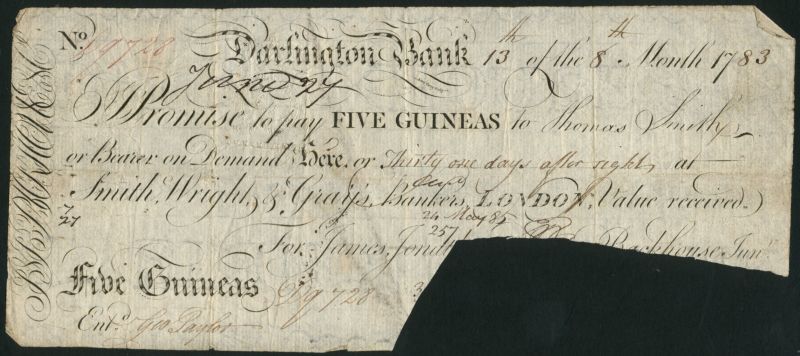 No. D9728 Darlington Bank 13th of the 8th Month 1783
I Promise to pay FIVE GUINEAS to Thomas Smith
or Bearer on Demand Here, or Thirty one days after sight, at
Smith, Wright, & Gray's, Bankers, LONDON, Value received.
7/27
24 May 85
257
For James, Jona Backhouse Junr
Five Guineas D9728
Entd. Geo Taylor